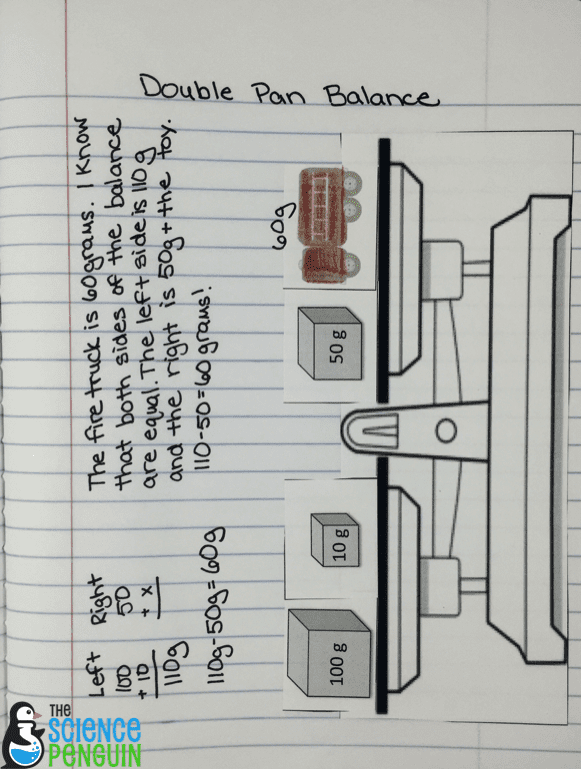 Double Pan Balance
The fire truck is 60 grams. I know
that both sides of the balance
are equal. The left side is 110 g
and the right is 50g + the toy.
110-50=60 grams!
Left
100
+ 10
110g
Right
50
+ x
110g-50g=60g
60g
100 g
10 g
50 g
THE
SCIENCE
PENGUIN